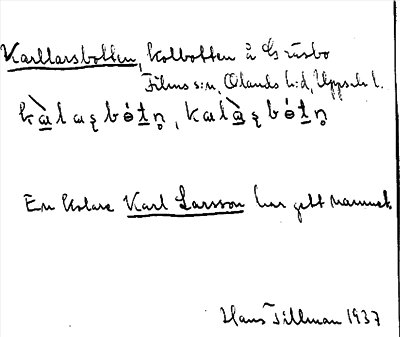 Karllarsbotten, kolbotten å Gräsbo
Films s:n, Olands h:d, Uppsala l.
kàlaʂbótn̥, kalàʂbótn̥
En kolare Karl Larsson har gett namnet.
Hans Tillman 1937